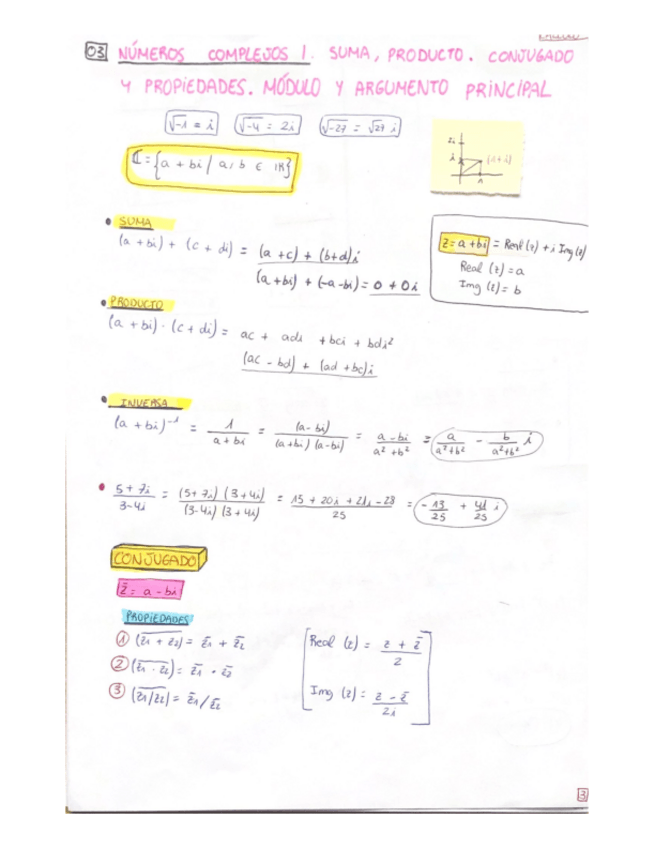 03 NÚMEROS COMPLEJOS I. SUMA, PRODUCTO. CONJUGADO
Y PROPIEDADES. MÓDULO Y ARGUMENTO PRINCIPAL
√-1 = i √-4 = 2i √-27 = √27 i
ℂ = {a + bi / a, b ∈ ℝ}
2i
i (1+i)
1
• SUMA
(a + bi) + (c + di) = (a + c) + (b+d)i
(a + bi) + (-a - bi) = 0 + 0i
z = a + bi = Real (z) + i Img (z)
Real (z) = a
Img (z) = b
• PRODUCTO
(a + bi) · (c + di) = ac + adi + bci + bdi²
(ac - bd) + (ad + bc)i
• INVERSA
(a + bi)⁻¹ = 1/(a + bi) = (a - bi)/((a + bi)(a - bi)) = (a - bi)/(a² + b²) = a/(a² + b²) - b/(a² + b²) i
• (5 + 7i)/(3 - 4i) = ((5 + 7i)(3 + 4i))/((3 - 4i)(3 + 4i)) = (15 + 20i + 21i - 28)/25 = -13/25 + 41/25 i
CONJUGADO
z̄ = a - bi
PROPIEDADES
① (z₁ + z₂)‾ = z̄₁ + z̄₂
② (z₁ · z₂)‾ = z̄₁ · z̄₂
③ (z₁/z₂)‾ = z̄₁ / z̄₂
Real (z) = (z + z̄)/2
Img (z) = (z - z̄)/2i
3